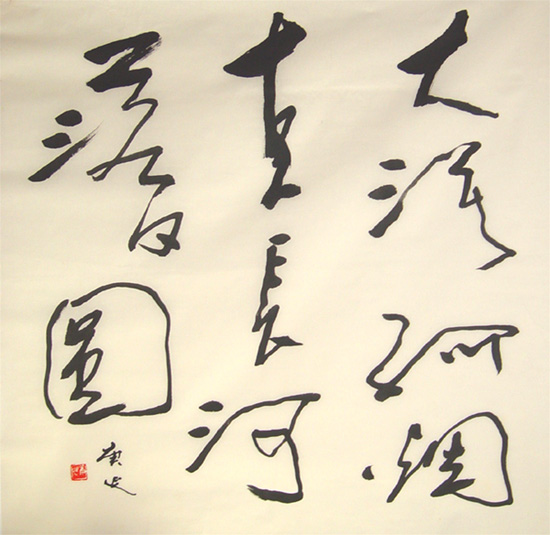 大漠孤烟
直长河
落日圆